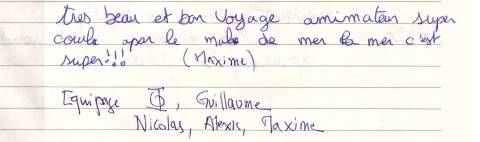 très beau et bon voyage animateur super
coule apar le male de mer la mer c'est
super!!! (Maxime)
Equipage Φ, Guillaume
Nicolas, Alexis, Maxime